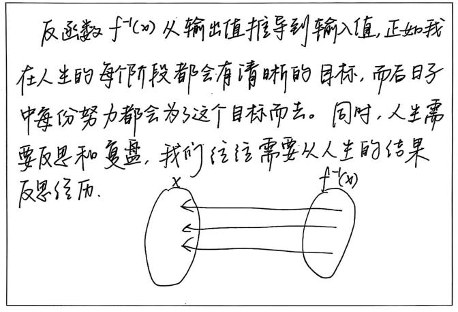 反函数 f⁻¹(x) 从输出值推导到输入值,正如我
在人生的每个阶段都会有清晰的目标,而后日子
中每份努力都会为了这个目标而去。同时,人生需
要反思和复盘,我们往往需要从人生的结果
反思经历.
x f⁻¹(x)